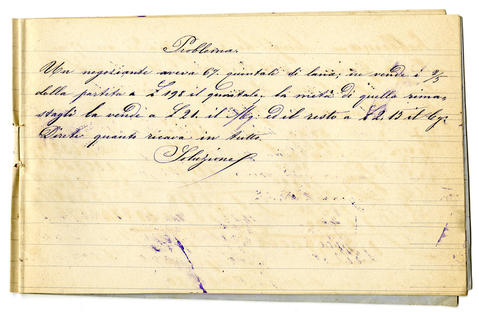 Problema.
Un negoziante aveva 67 quintali di lana; ne vende i 2/5
della partita a £ 190 il quintale, la metà di quella rima-
stagli la vende a £ 2 il Kg: ed il resto a £ 2.15 il Kg:
Direte quanto ricava in tutto.
Soluzione